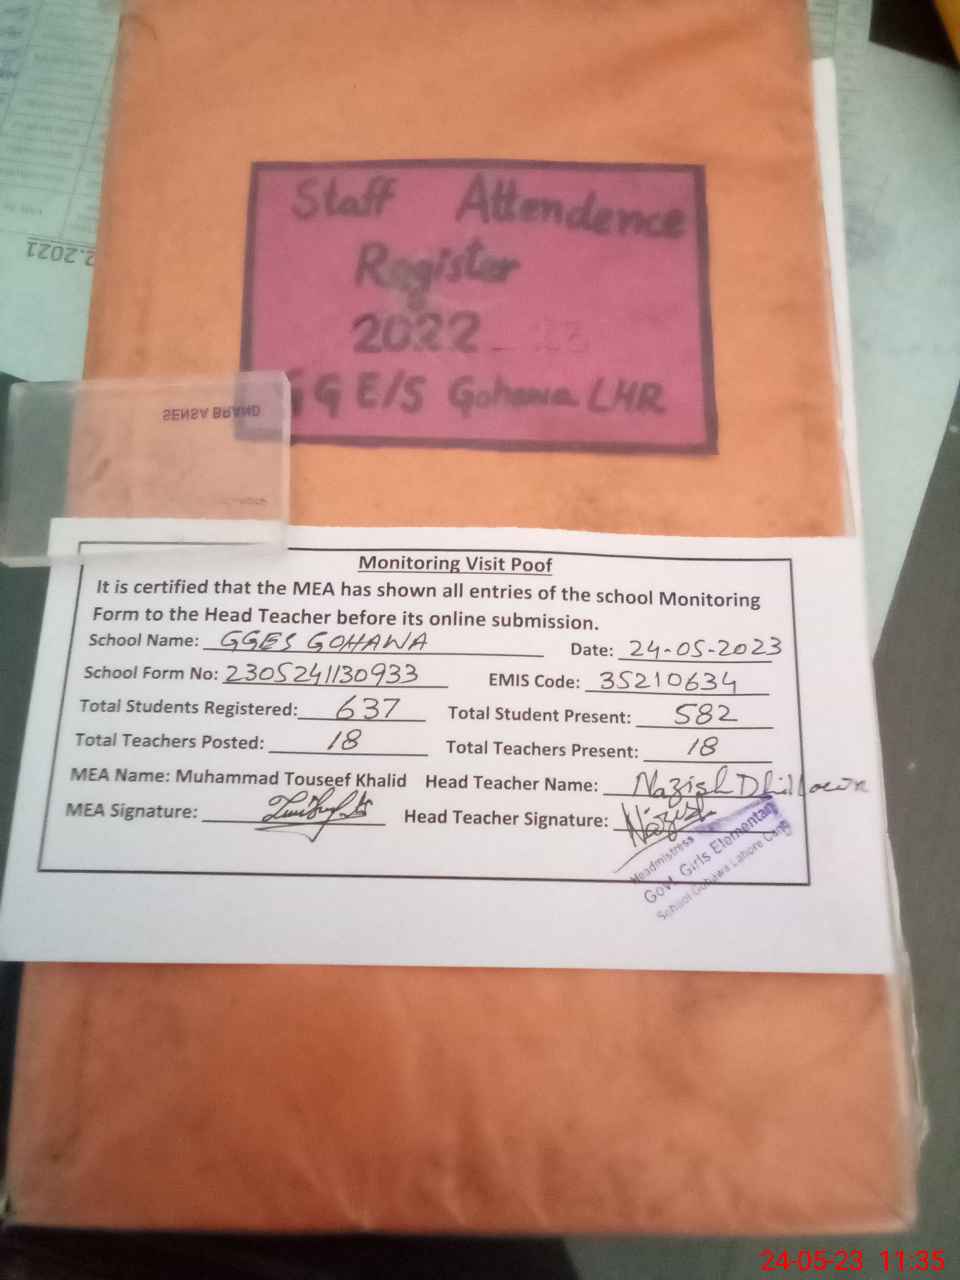 Staff Attendence
Register
2022 23
G G E/S Gohawa LHR
SENSA BRAND
2.2021
Monitoring Visit Poof
It is certified that the MEA has shown all entries of the school Monitoring
Form to the Head Teacher before its online submission.
School Name: GGES GOHAWA Date: 24-05-2023
School Form No: 2305241130933 EMIS Code: 35210634
Total Students Registered: 637 Total Student Present: 582
Total Teachers Posted: 18 Total Teachers Present: 18
MEA Name: Muhammad Touseef Khalid Head Teacher Name: Nazish Dhilloun
MEA Signature: Head Teacher Signature: Nazish
Headmistress
Govt. Girls Elementary
School Gohawa Lahore Cantt
24-05-23 11:35